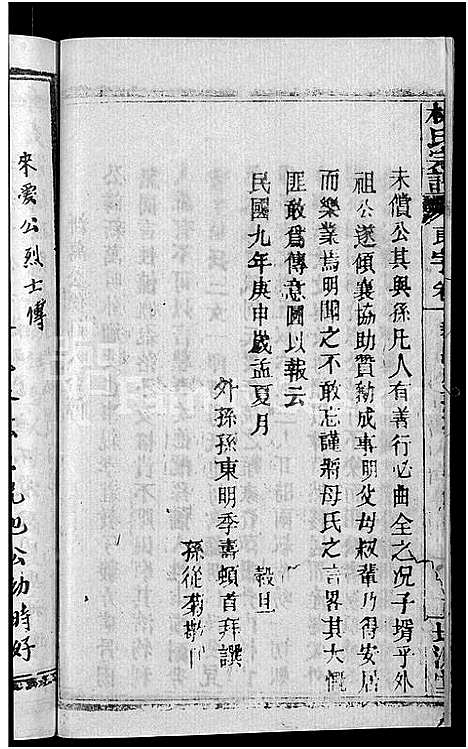 林氏宗譜
未償公其興孫凡人有善行必曲全之况子壻乎外
祖公遂傾襄協助贊勷成事明父母叔輩乃得安居
而樂業焉明聞之不敢忘謹將母氏之言畧其大慨
匪敢爲傳意圖以報云
民國九年庚申歲孟夏月
穀旦
外孫孫東明季壽頓首拜譔
孫從菊敬
來愛公烈士傳
兄也公幼時好